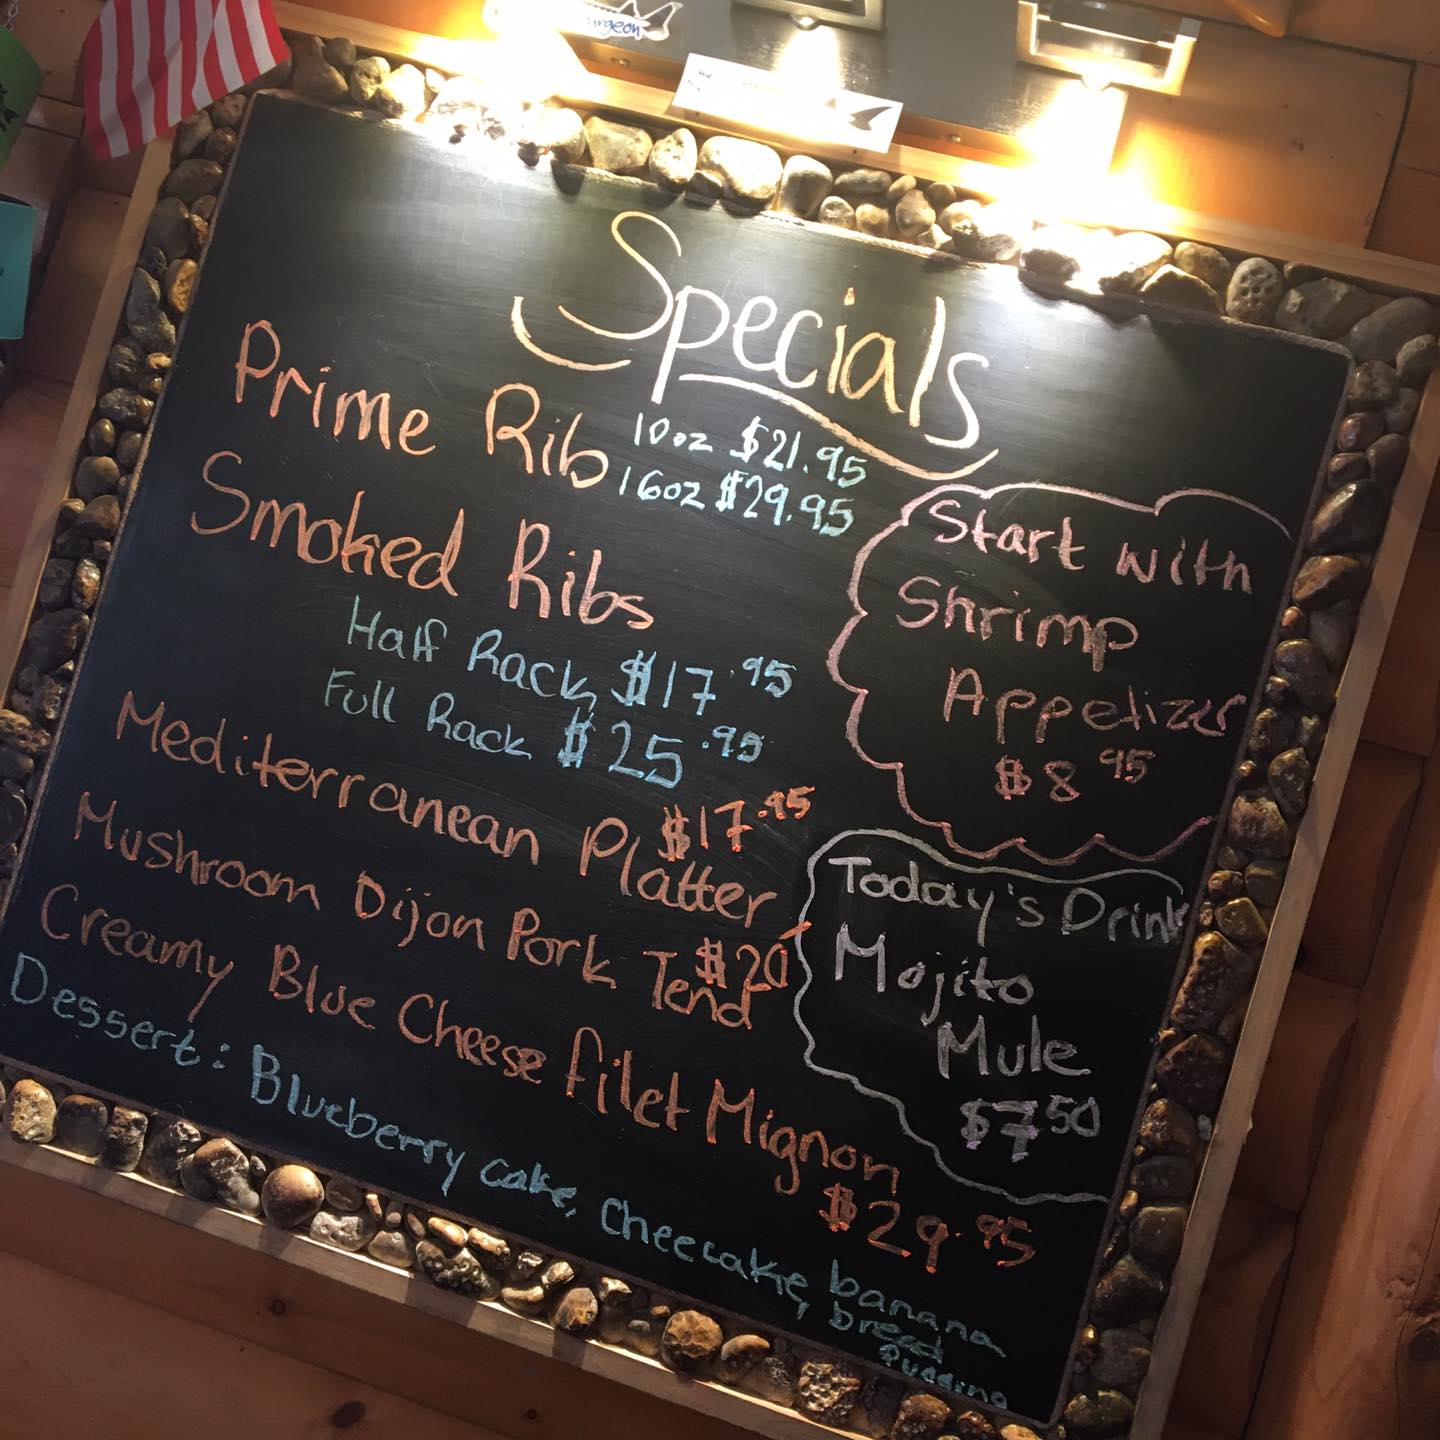 Specials
Prime Rib
10oz $21.95
16oz $29.95
Smoked Ribs
Half Rack $17.95
Full Rack $25.95
Mediterranean Platter
$17.95
Mushroom Dijon Pork Tend
$20
Creamy Blue Cheese filet Mignon
$29.95
Dessert: Blueberry cake, Cheecake, banana
bread
pudding
Start with
Shrimp
Appetizer
$8 95
Today's Drink
Mojito
Mule
$7 50